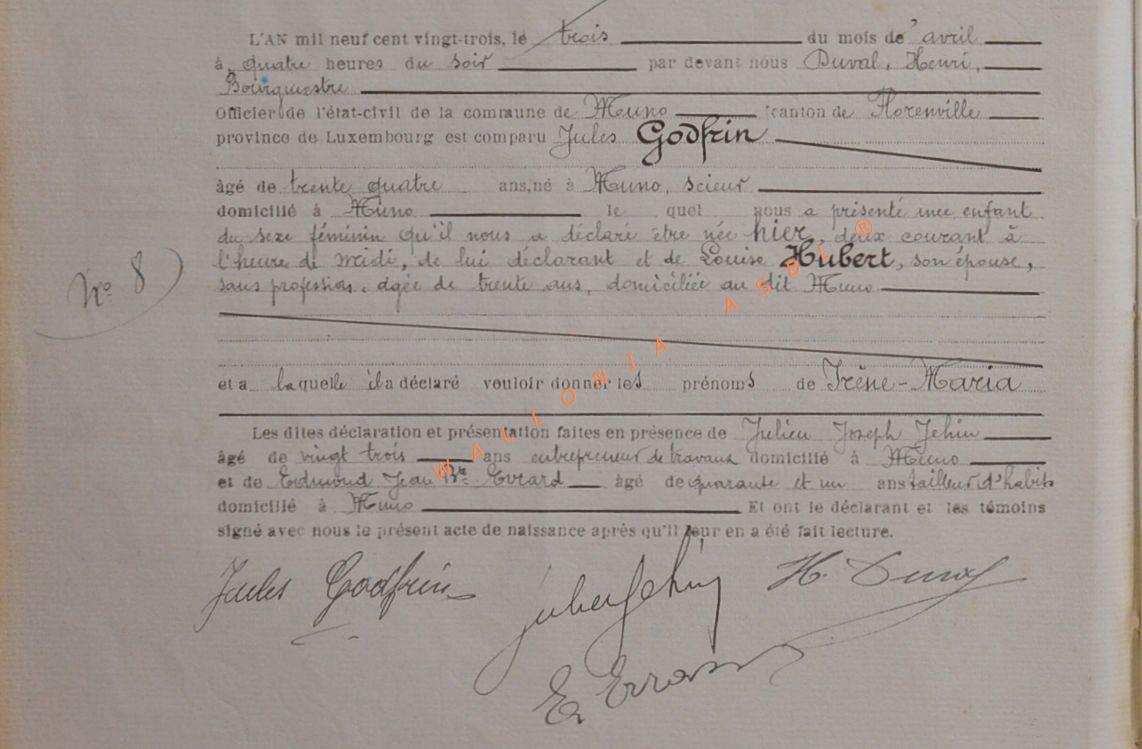 L'AN mil neuf cent vingt-trois, le trois du mois de avril
à quatre heures du soir par devant nous Duval, Henri,
Bourgmestre
Officier de l'état-civil de la commune de Muno canton de Florenville
province de Luxembourg est comparu Jules Godfrin
âgé de trente quatre ans, né à Muno, scieur
domicilié à Muno le quel nous a présenté une enfant
du sexe féminin qu'il nous a déclaré être née hier, deux courant à
l'heure de midi, de lui déclarant et de Louise Hubert, son épouse,
sans profession, agée de trente ans, domiciliée au dit Muno
N° 8
et a laquelle il a déclaré vouloir donner les prénoms de Irène-Maria
Les dites déclaration et présentation faites en présence de Julien Joseph Jehin
âgé de vingt trois ans entrepreneur de travaux domicilié à Muno
et de Edmond Jean Bte Evrard âgé de quarante et un ans tailleur d'habits
domicilié à Muno Et ont le déclarant et les témoins
signé avec nous le présent acte de naissance après qu'il leur en a été fait lecture.
Jules Godfrin Julien Jehin H. Duval
E. Evrard
WALLONIA ASBL ®